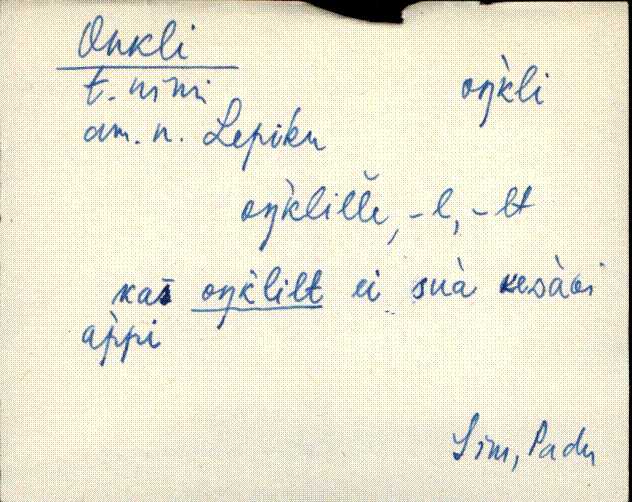 Onkli
t. nimi oŋ̀kli
am. n. Lepiku
oŋ̀klille, -l, -lt
kas oŋ̀klilt ei suà kesàGi
àppi
Sim, Padu